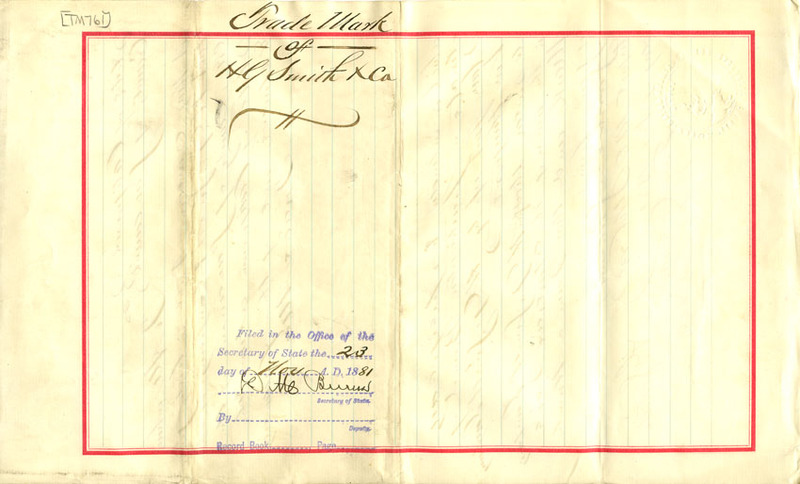 [TM761]
Trade Mark
of
H G Smith & Co
Filed in the Office of the
Secretary of State the 23
day of Nov A. D. 1881
Secretary of State.
By
Deputy.
Record Book Page